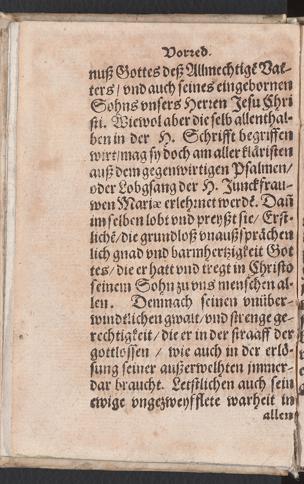 Vorred.
nuß Gottes deß Allmechtigē Vat-
ters / vnd auch seines eingebornen
Sohns vnsers Herren Jesu Chri
sti. Wiewol aber die selb allenthal-
ben in der H. Schrifft begriffen
wirt / mag sy doch am aller kläristen
auß dem gegenwirtigen Psalmen /
oder Lobgsang der H. Junckfrau-
wen Mariæ erlehrnet werdē. Dañ
im selben lobt vnd preyßt sie / Erst-
lichē / die grundloß vnaußsprächen
lich gnad vnd barmhertzigkeit Got
tes / die er hatt vnd tregt in Christo
seinem Sohn zu vns menschen al-
len. Demnach seinen vnüber-
windtlichen gwalt / vnd strenge ge-
rechtigkeit / die er in der straaff der
gottlossen / wie auch in der erlö-
sung seiner außerwelhten immer-
dar braucht. Letstlichen auch sein
ewige vngezweyfflete warheit in
allen